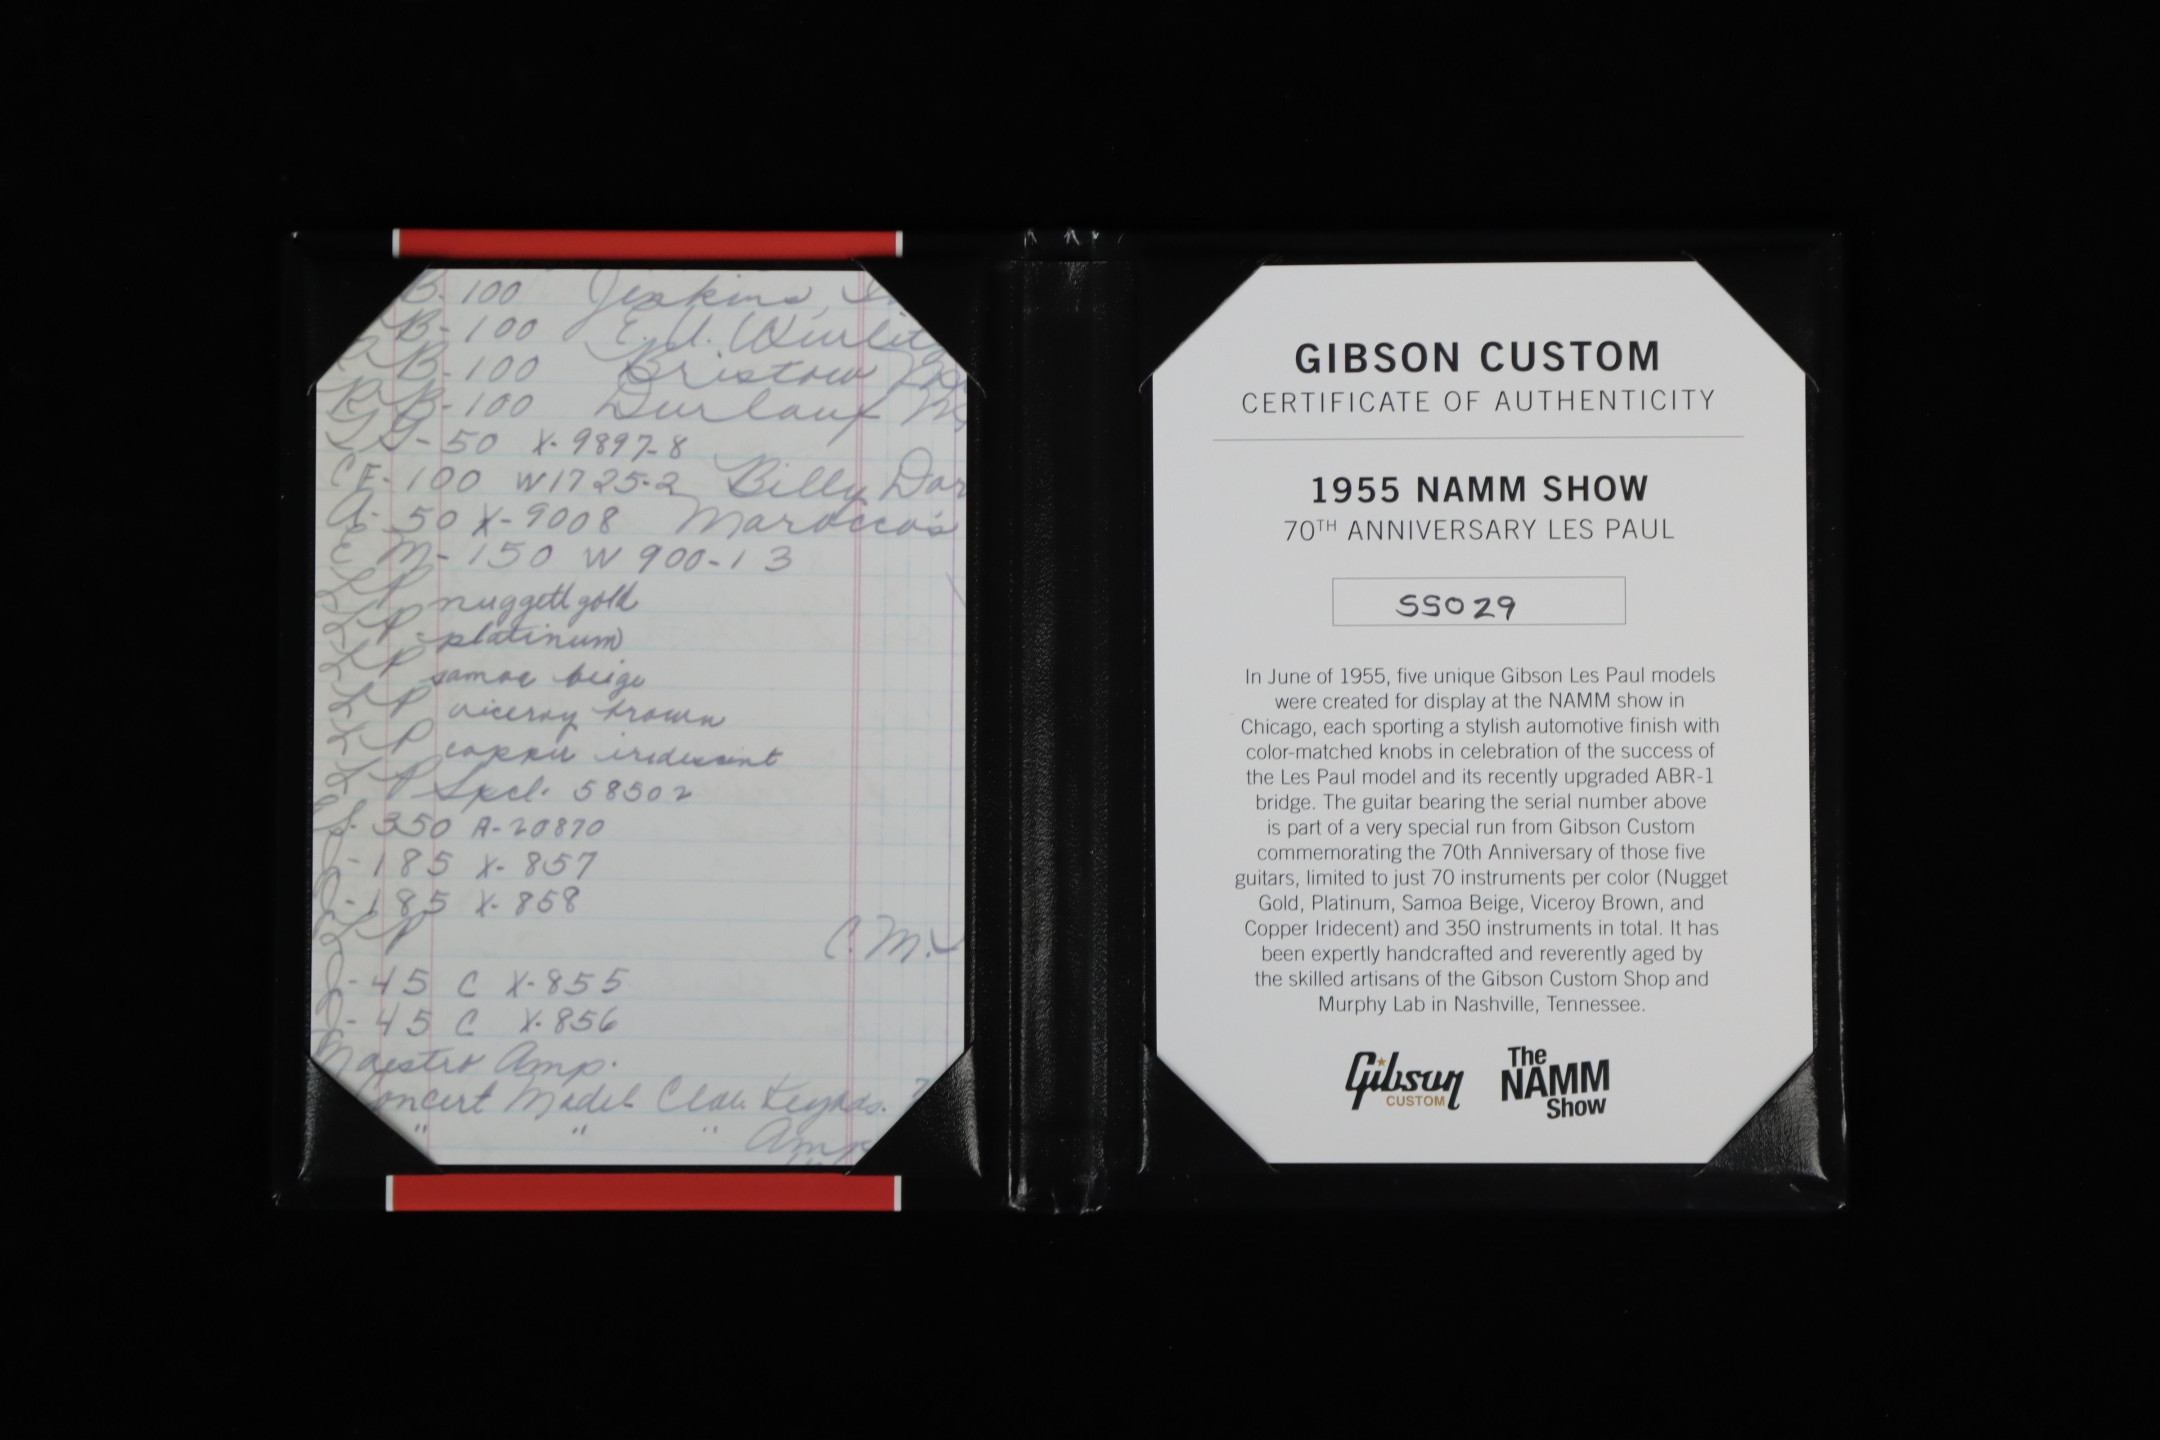 B-100 Jenkins
B-100 E. U. Wurlit
B-100 Bristow
B-100 Durlauf
GA-50 X-9897-8
CF-100 W1725-2 Billy Dar
A-50 X-9008 Marocco's
EM-150 W900-13
LP nuggett gold
LP platinum
LP samoa beige
LP viceroy brown
LP copper iridescent
LP Spcl. 58502
S-350 A-20870
J-185 X-857
J-185 X-858
LP C.M.
J-45 C X-855
J-45 C X-856
Maestro Amp.
Concert Model Clav. Keybds.
" " " Amp
GIBSON CUSTOM
CERTIFICATE OF AUTHENTICITY
1955 NAMM SHOW
70TH ANNIVERSARY LES PAUL
55029
In June of 1955, five unique Gibson Les Paul models
were created for display at the NAMM show in
Chicago, each sporting a stylish automotive finish with
color-matched knobs in celebration of the success of
the Les Paul model and its recently upgraded ABR-1
bridge. The guitar bearing the serial number above
is part of a very special run from Gibson Custom
commemorating the 70th Anniversary of those five
guitars, limited to just 70 instruments per color (Nugget
Gold, Platinum, Samoa Beige, Viceroy Brown, and
Copper Iridecent) and 350 instruments in total. It has
been expertly handcrafted and reverently aged by
the skilled artisans of the Gibson Custom Shop and
Murphy Lab in Nashville, Tennessee.
Gibson
CUSTOM
The
NAMM
Show